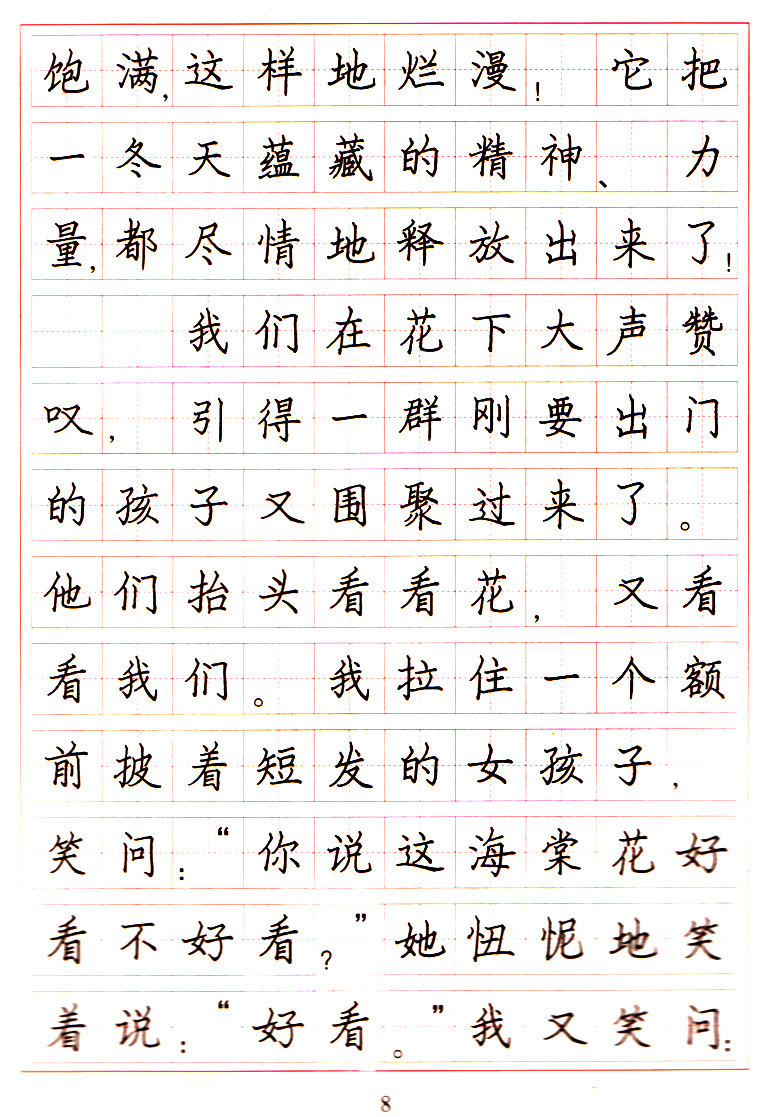 饱满,这样地烂漫!它把
一冬天蕴藏的精神、力
量,都尽情地释放出来了!
我们在花下大声赞
叹,引得一群刚要出门
的孩子又围聚过来了。
他们抬头看看花,又看
看我们。我拉住一个额
前披着短发的女孩子,
笑问:“你说这海棠花好
看不好看?”她忸怩地笑
着说:“好看。”我又笑问:
8